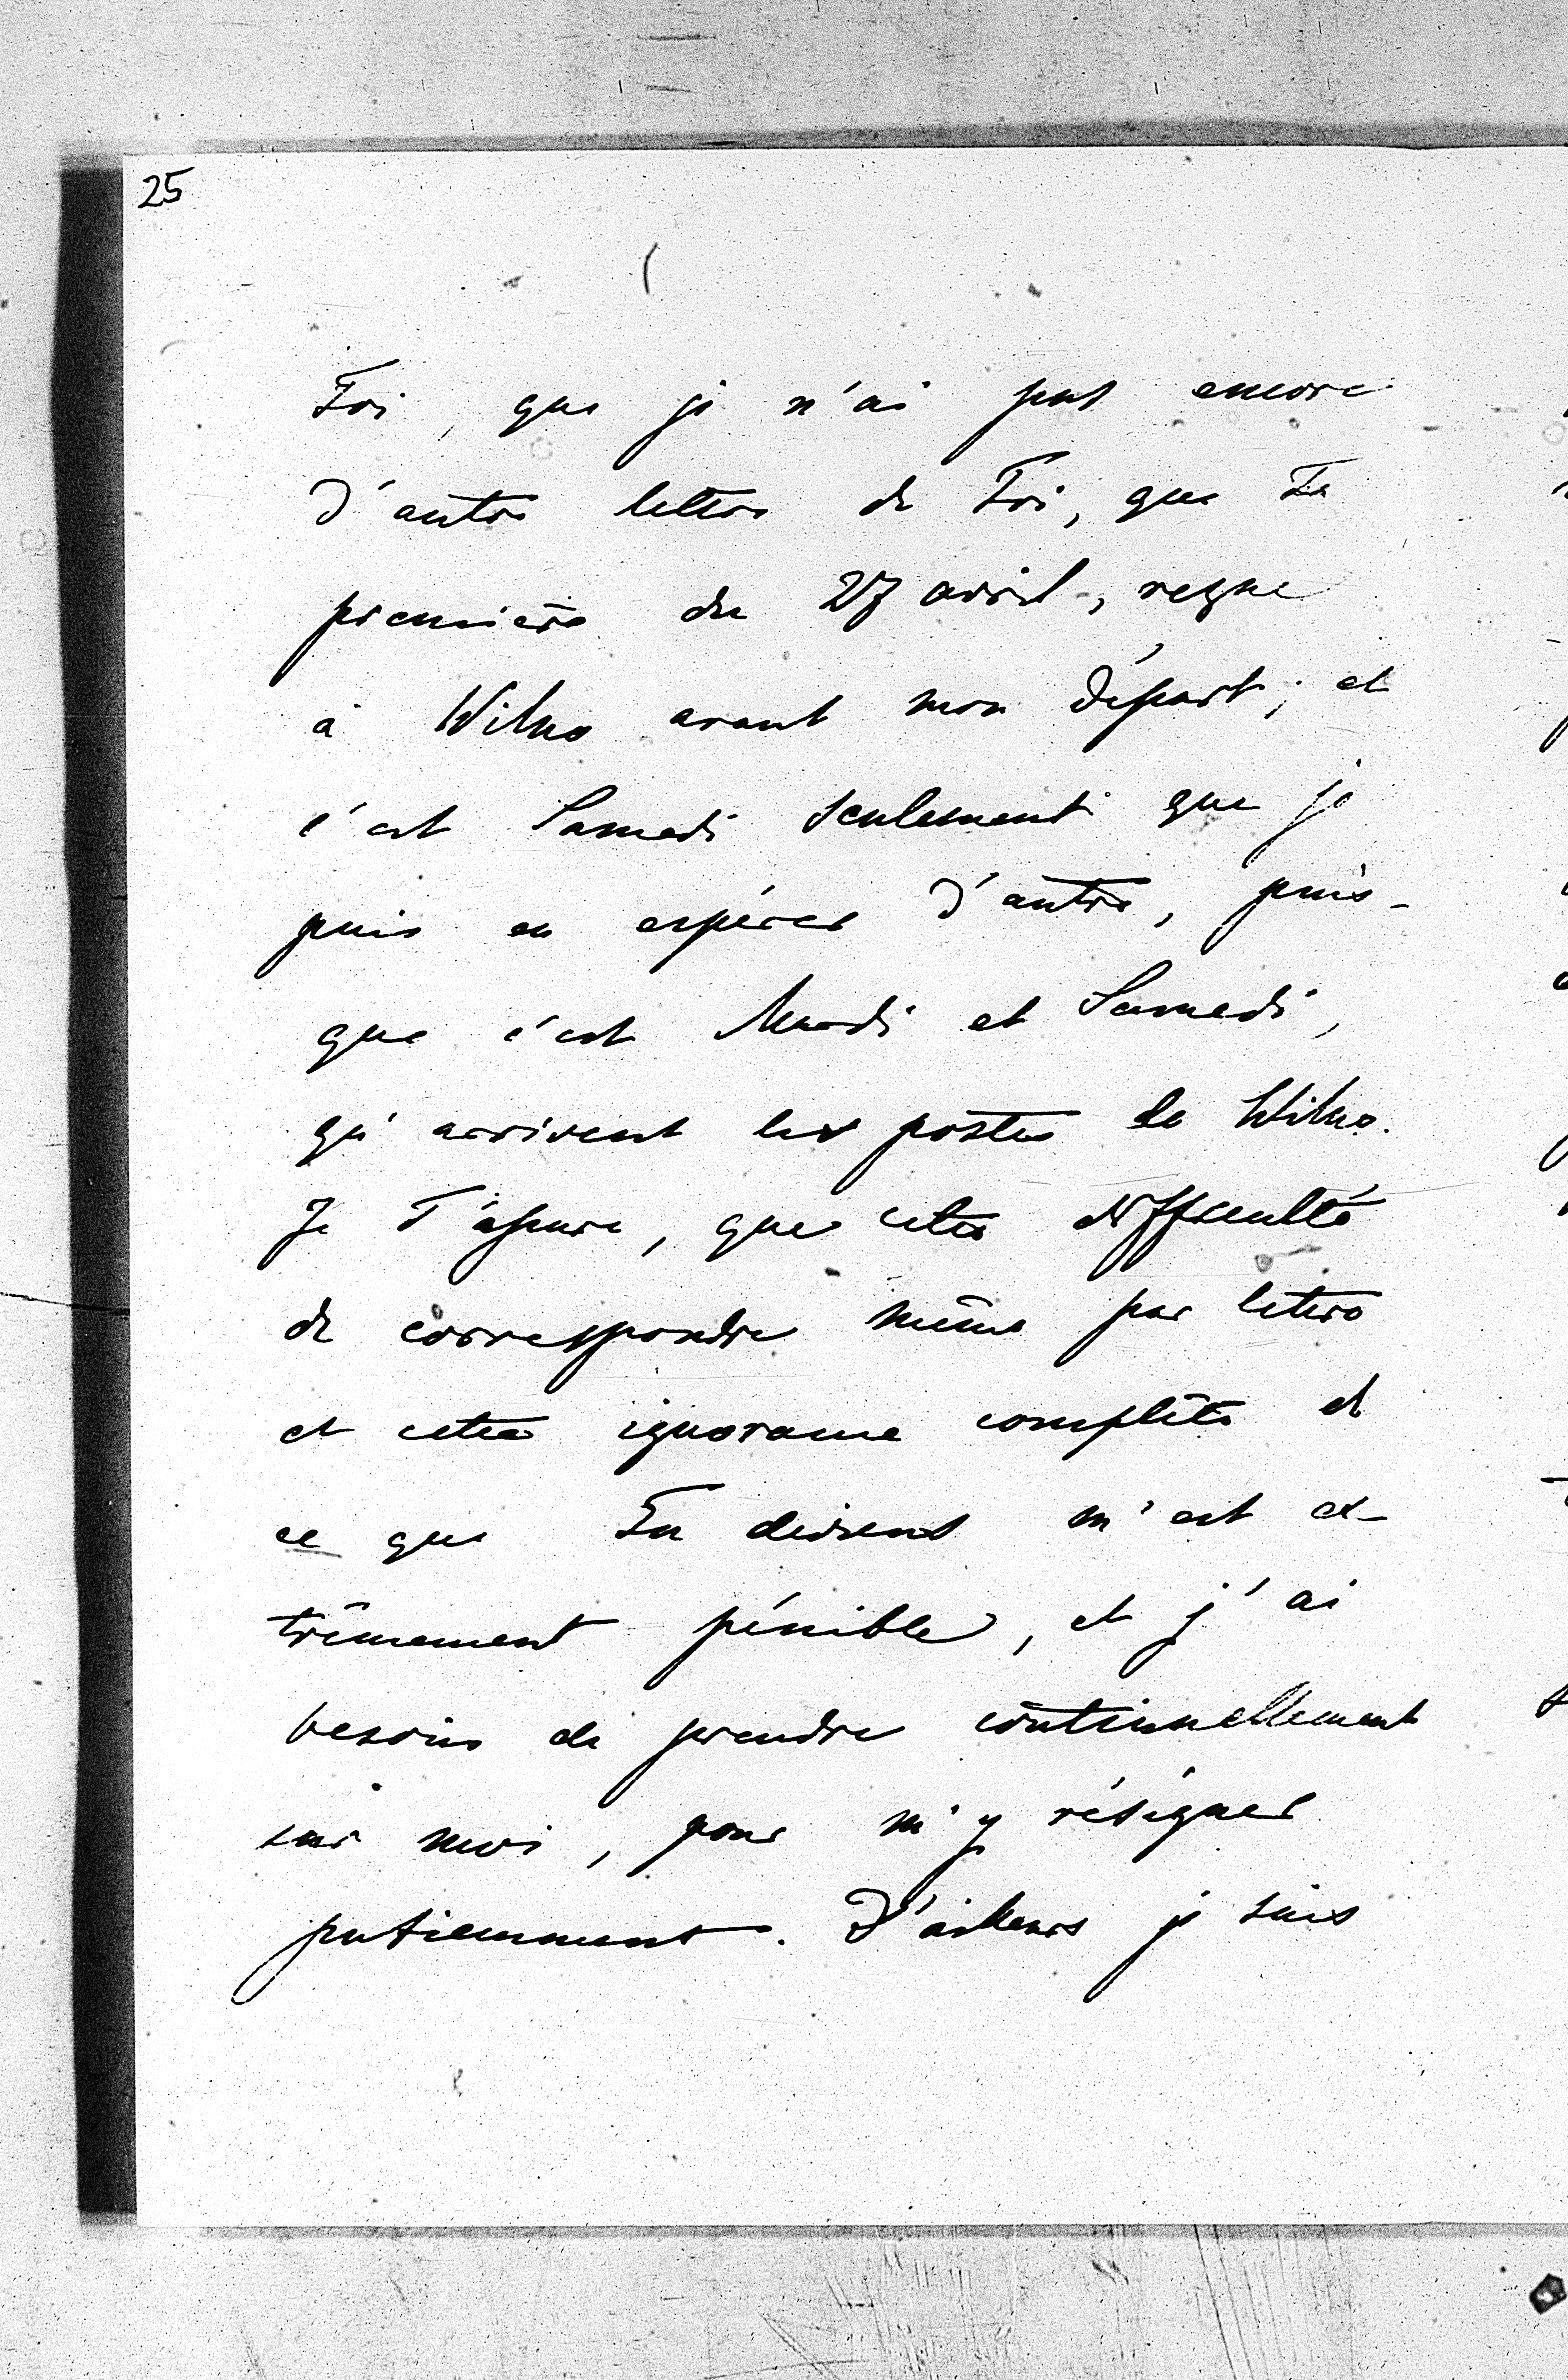 25
Toi, que je n'ai pas encore
d'autre lettre de Toi, que Ta
première du 27 avril, reçue
à Wilno avant mon départ; et
c'est Samedi seulement que je
puis en espérer d'autre, puis-
que c'est Mardi et Samedi,
qu'arrivent les postes de Wilno.
Je T'assure, que cette difficulté
de correspondre même par lettre
et cette ignorance complète de
ce que Tu deviens m'est ex-
trêmement pénible, et j'ai
besoin de prendre continuellement
sur moi, pour m'y résigner
patiemment. D'ailleurs je suis